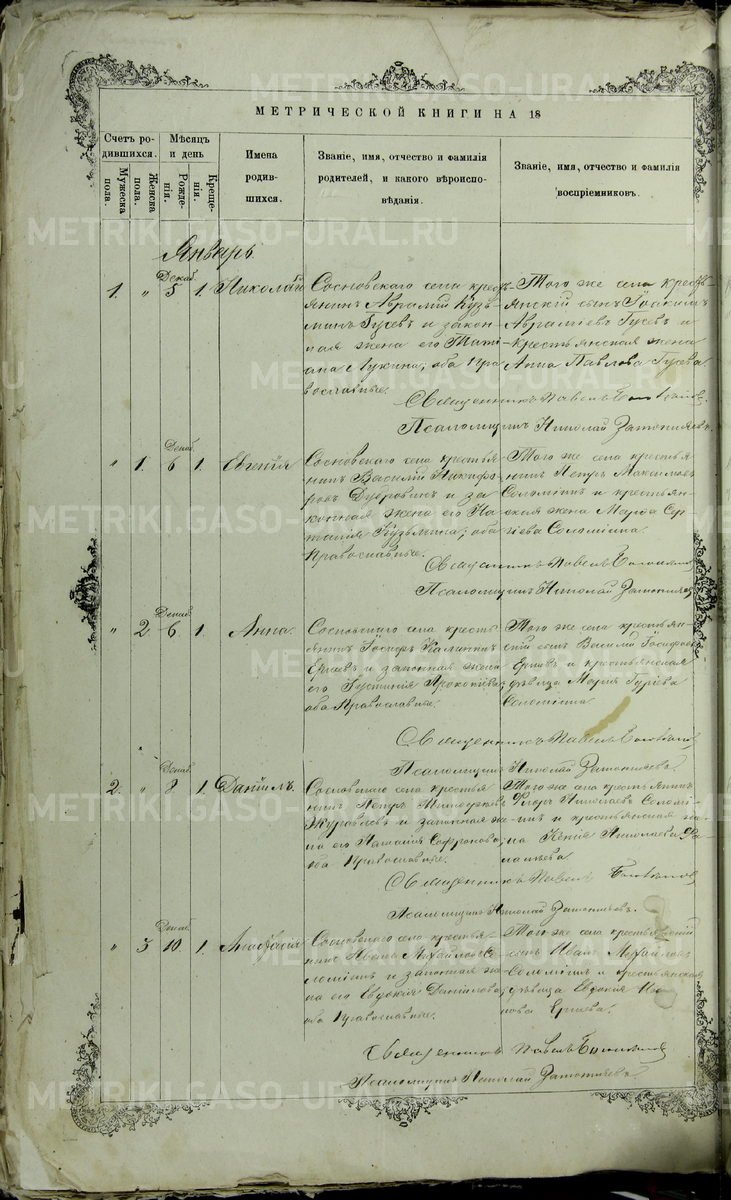 МЕТРИЧЕСКОЙ КНИГИ НА 18
Счетъ родившихся.
Мужеска пола.
Женска пола.
Мѣсяцъ и день
Рожденія.
Крещенія.
Имена родившихся.
Званіе, имя, отчество и фамилія родителей, и какого вѣроисповѣданія.
Званіе, имя, отчество и фамилія воспріемниковъ.
Январь.
1. " Декаб. 5 1. Николай
Сосновскаго села крестьянинъ
Аврамій Кузьминъ
Гусевъ и законная
жена его Татіана
Лукина, оба православные.
Того же села крестьянскій
сынъ Іоакимъ
Авраміевъ Гусевъ и
крестьянская жена
Анна Павлова Гусева.
Священникъ Павелъ
Псаломщикъ Николай
" 1. Декаб. 6 1. Евгенія
Сосновскаго села крестьянинъ
Василій Никифоровъ
и законная
жена его
Кузьмина, оба
православные.
Того же села крестьянинъ
Петръ Максимовъ
Соломинъ и крестьянская
жена Марѳа Сергіева
Соломина.
Священникъ Павелъ
Псаломщикъ Николай
" 2. Декаб. 6 1. Анна.
Сосновскаго села крестьянинъ
Іосифъ Калинин
и законная жена
его Іустинія Прокопіева,
оба православные.
Того же села крестьянскій
сынъ Василій Іосифовъ
и крестьянская
дѣвица Марія Гуріева
Соломина.
Священникъ Павелъ
Псаломщикъ Николай
2. " Декаб. 8 1. Даніилъ.
Сосновскаго села крестьянинъ
Петръ
Журавлевъ и законная жена
его Наталія Софронова,
оба православные.
Того же села крестьянинъ
Ѳедоръ Николаевъ Соломинъ
и крестьянская жена
Ксенія Николаева
Священникъ Павелъ
Псаломщикъ Николай
" 3 Декаб. 10 1. Анастасія
Сосновскаго села крестьянинъ
Иванъ Михайловъ Соломинъ
и законная жена
его Евдокія Данилова,
оба православные.
Того же села крестьянскій
сынъ Иванъ Михайловъ
Соломинъ и крестьянская
дѣвица Евдокія Иванова
Священникъ Павелъ
Псаломщикъ Николай
METRIKI.GASO-URAL.RU